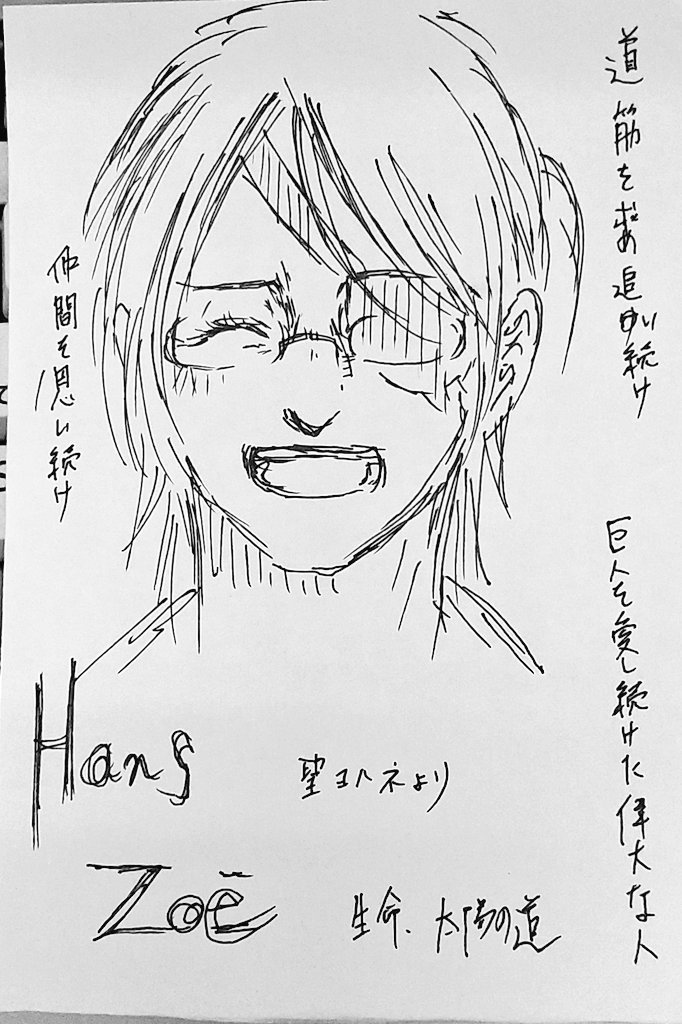 道筋を求め追い続け
仲間を思い続け
巨人を愛し続けた偉大な人
Hans
聖ヨハネより
Zoë
生命、太陽の道